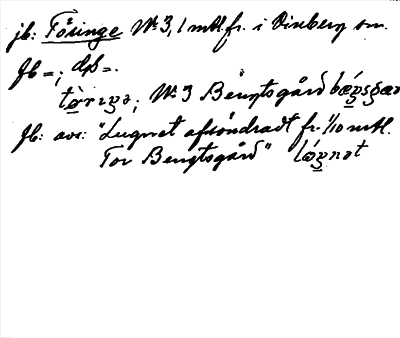 jb: Töringe No 3, 1 mtl. fr. i Vinberg sn.
Jb =; dsb =.
tòrıŋə; No 3 Bengtsgård bæŋsgæd
Jb: avs: "Lugnet afsöndradt fr. 1/10 mtl.
Tor Bengtsgård" lóŋnət